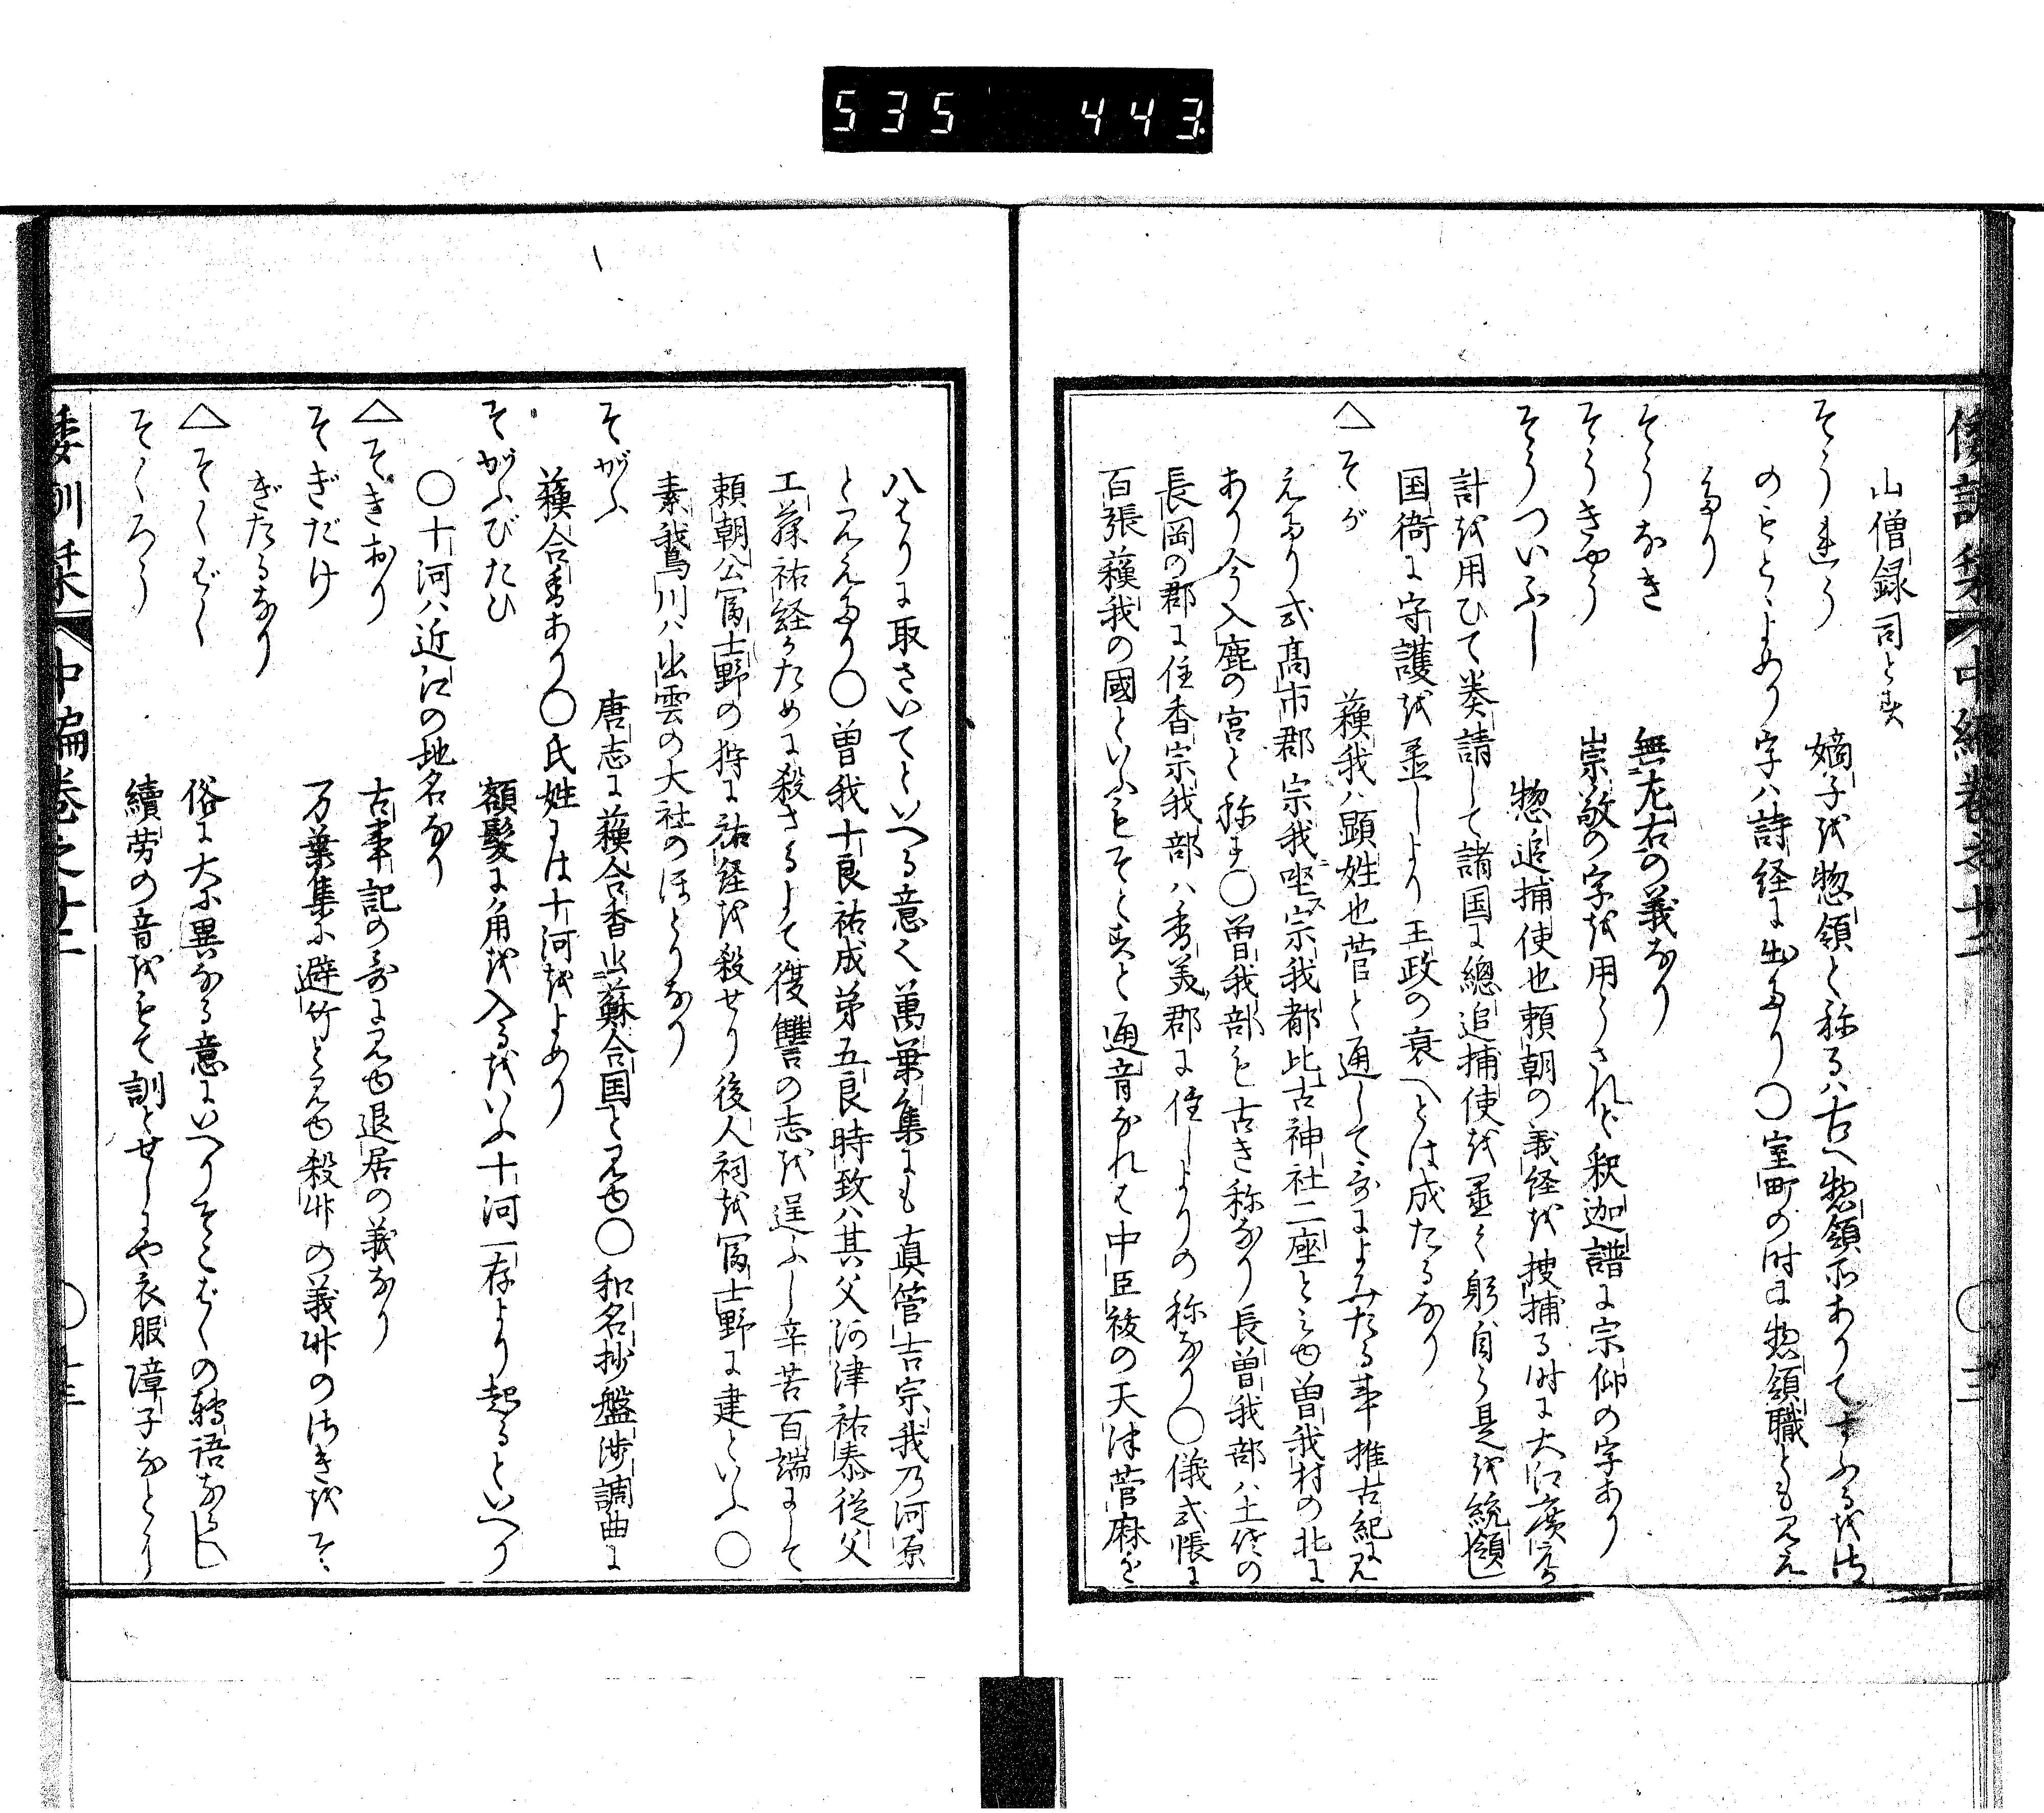 535 443
倭訓栞 中編巻之十二
山僧録司とす
そうれう 嫡子を惣領と称るハ古へ惣領所ありてすふるをは
のもとゝよめり字ハ詩経に出たり〇室町の時に惣領職とも見え
たり
そうなき 無左右の義なり
そうきやう 崇敬の字を用うされど釈迦譜に宗仰の字あり
そうついふし 惣追捕使也頼朝の義経を捜捕る時に大江廣元
計を用ひて奏請して諸国に總追捕使を置く躬自ら是を統領し
国衙に守護を置しより王政の衰へとは成たるなり
△そが 蘓我ハ顕姓也菅と通して哥によみたる事推古紀に見
えたり式高市郡宗我坐宗我都比古神社二座とみゆ曽我村の北に
あり今入鹿の宮と称す〇曽我部も古き称なり長曽我部ハ土佐の
長岡の郡に住香宗我部ハ香美郡に住しよりの称なり〇儀式帳に
百張蘓我の國といふもそとすと通音なれは中臣祓の天津菅麻を
八はりに取さいてといへる意く萬葉集にも真管吉宗我乃河原
とみえたり〇曽我十良祐成弟五良時致ハ其父河津祐泰従父
工藤祐経かために殺さるよて復讐の志を逞ふし辛苦百端にして
頼朝公冨士野の狩に祐経を殺せり後人祠を冨士野に建といふ〇
素我川ハ出雲の大社のほとりなり
そがふ 唐志に蘓合香出蘇合国とみゆ〇和名抄盤渉調曲に
蘓合香あり〇氏姓には十河をよめり
そがふびたひ 額髪に角を入るをいふ十河一存より起るといへり
〇十河ハ近江の地名なり
△そきおり 古事記の哥にみゆ退居の義なり
そぎだけ 万葉集に避竹とみゆ殺竹の義竹のはきをそ
ぎたるなり
△そくばく 俗に大に異なる意にいへりそこばくの轉語なるへし
そくろう 續労の音をもて訓とせしにや衣服障子なとり
倭訓栞 中編巻之十二